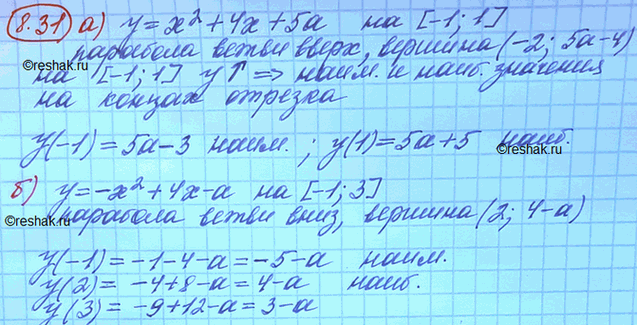 8.31 а) y = x² + 4x + 5a на [-1; 1]
парабола ветви вверх, вершина (-2; 5a-4)
на [-1; 1] y↑ => наим. и наиб. значения
на концах отрезка
©reshak.ru
y(-1) = 5a-3 наим. ; y(1) = 5a+5 наиб.
©reshak.ru
б) y = -x² + 4x - a на [-1; 3]
©reshak.ru
парабола ветви вниз, вершина (2; 4-a)
y(-1) = -1-4-a = -5-a наим.
y(2) = -4+8-a = 4-a наиб.
©reshak.ru
y(3) = -9+12-a = 3-a